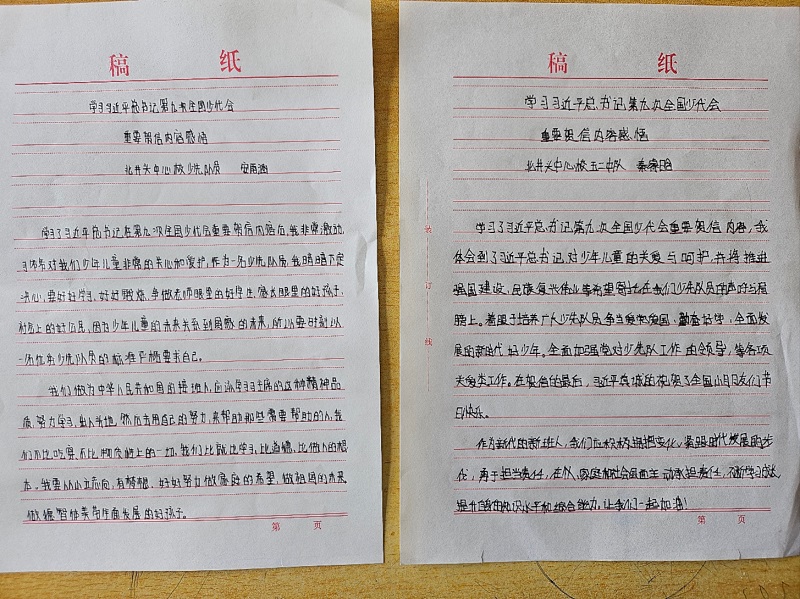 稿 纸
学习习近平总书记第九次全国少代会
重要贺信内容感悟
北井头中心校少先队员 安雨涵
学习了习近平总书记在第九次全国少代会重要贺信内容后,我非常激动,
习爷爷对我们少年儿童非常的关心和爱护,作为一名少先队员,我暗暗下定
决心,要好好学习,好好锻炼,争做老师眼里的好学生,家长眼里的好孩子
社会上的好公民,因为少年儿童的未来关系到国家的未来,所以要时刻以
一名优秀少先队员的标准严格要求自己。
我们做为中华人民共和国的接班人,应该学习主席的这种精神品
质,努力学习,出人头地,然后去用自己的努力,来帮助那些需要帮助的人,我
们不比吃穿,不比物质上的一切,我们比就比学习,比道德,比做人的根
本。我要从小立志向,有梦想,好好努力做家庭的希望,做祖国的未来
做德智体美劳全面发展的好孩子。
第 页
稿 纸
学习习近平总书记第九次全国少代会
重要贺信内容感悟
北井头中心校五二中队
学习了习近平总书记第九次全国少代会重要贺信内容,我
体会到了习近平总书记对少年儿童的关爱与呵护,并将推进
强国建设、民族复兴伟业等希望寄托在我们少先队员的声好与展
腾上。着眼于培养广大少先队员争当爱党爱国、勤奋好学、全面发
展的新时代好少年。全面加强党对少先队工作的领导,等各项
关爱类工作。在贺信的最后,习近平真诚的祝贺了全国小朋友们节
日快乐。
作为新代的新班人,我们应积极拥抱变化,紧跟时代发展的步
伐,勇于担当责任,在个人、家庭和社会层面主动承担责任,不断学习
提升自己的知识水平和综合能力,让我们一起加油!
第 页
装
订
线